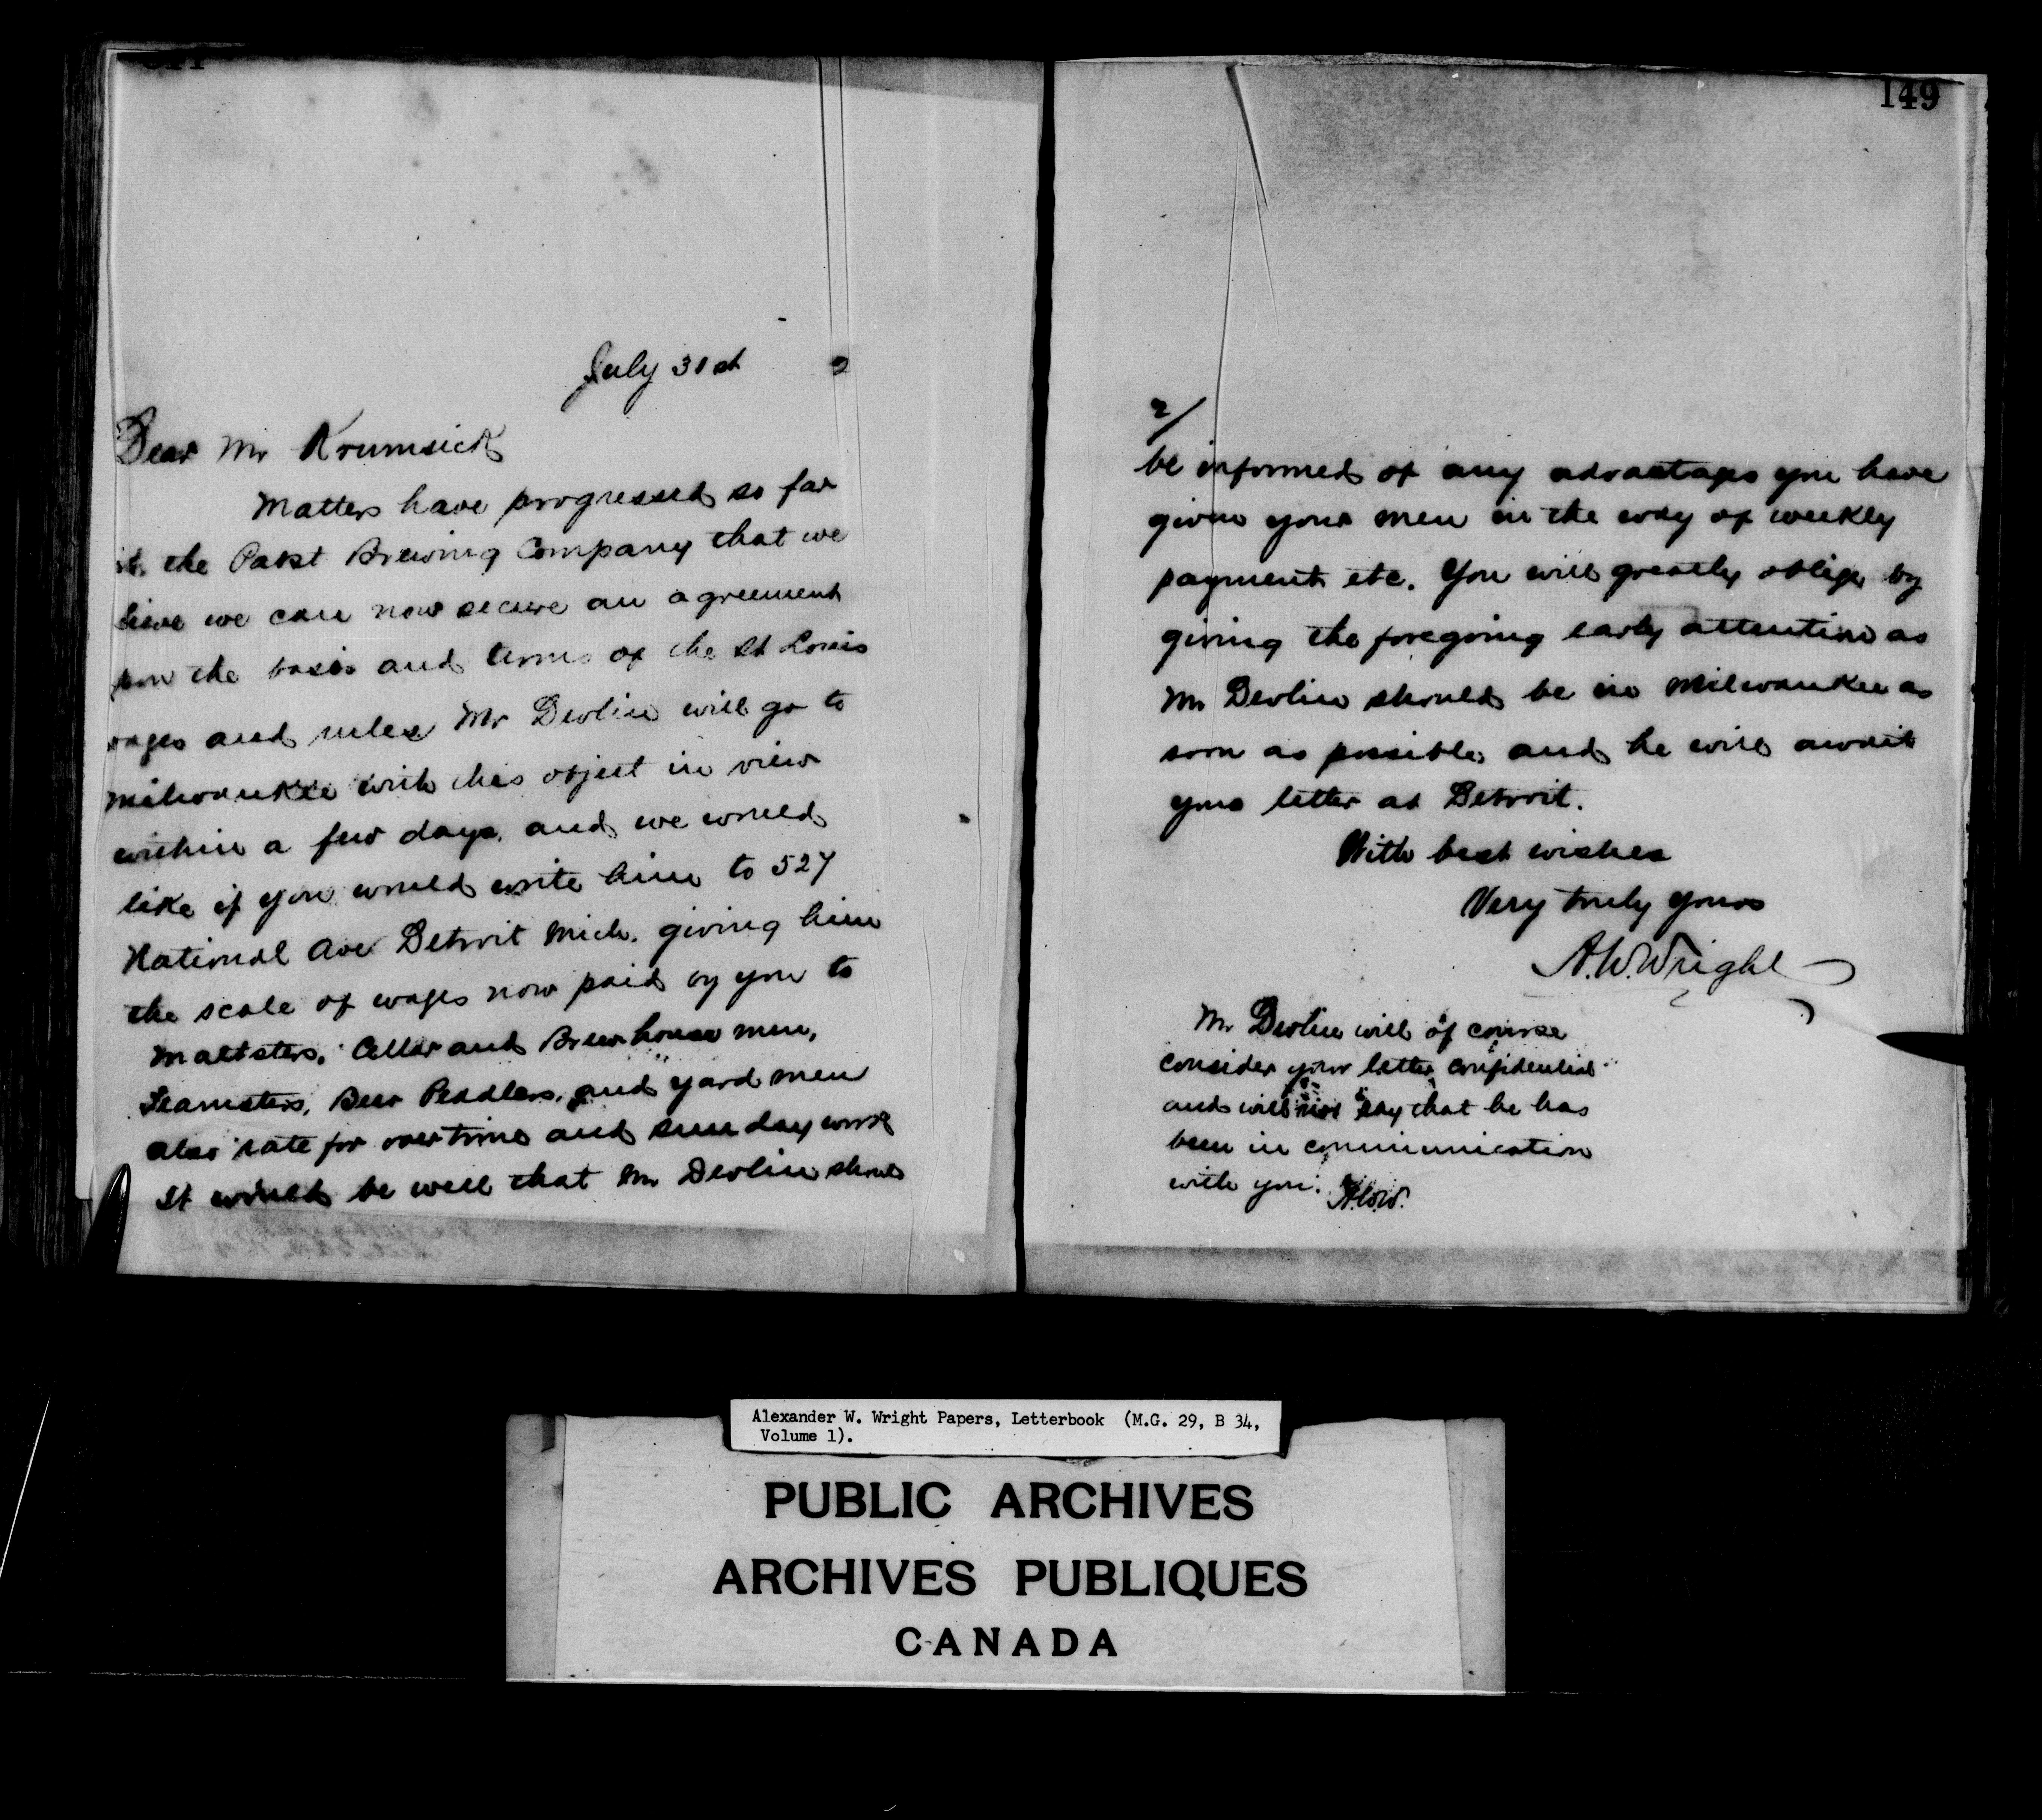 July 31st 2
Dear Mr Krumsick
Matters have progressed so far
the Pabst Brewing Company that we
lieve we can now secure an agreement
pon the basis and terms of the St Louis
wages and rules Mr Devlin will go to
Milwaukee with this object in view
within a few days, and we would
like if you would write him to 527
National Ave Detroit Mich. giving him
the scale of wages now paid by you to
Maltsters, Cellar and Brewhouse men,
Teamsters, Beer Peddlers, and yard men
also rate for overtime and sunday work
It would be well that Mr Devlin should
149
2/
be informed of any advantages you have
given your men in the way of weekly
payment etc. You will greatly oblige by
giving the foregoing early attention as
Mr Devlin should be in Milwaukee as
soon as possible and he will await
your letter at Detroit.
With best wishes
Very truly yours
A.W. Wright
Mr Devlin will of course
consider your letter confidential
and will not say that he has
been in communication
with you. A.W.W.
Alexander W. Wright Papers, Letterbook (M.G. 29, B 34,
Volume 1).
PUBLIC ARCHIVES
ARCHIVES PUBLIQUES
CANADA